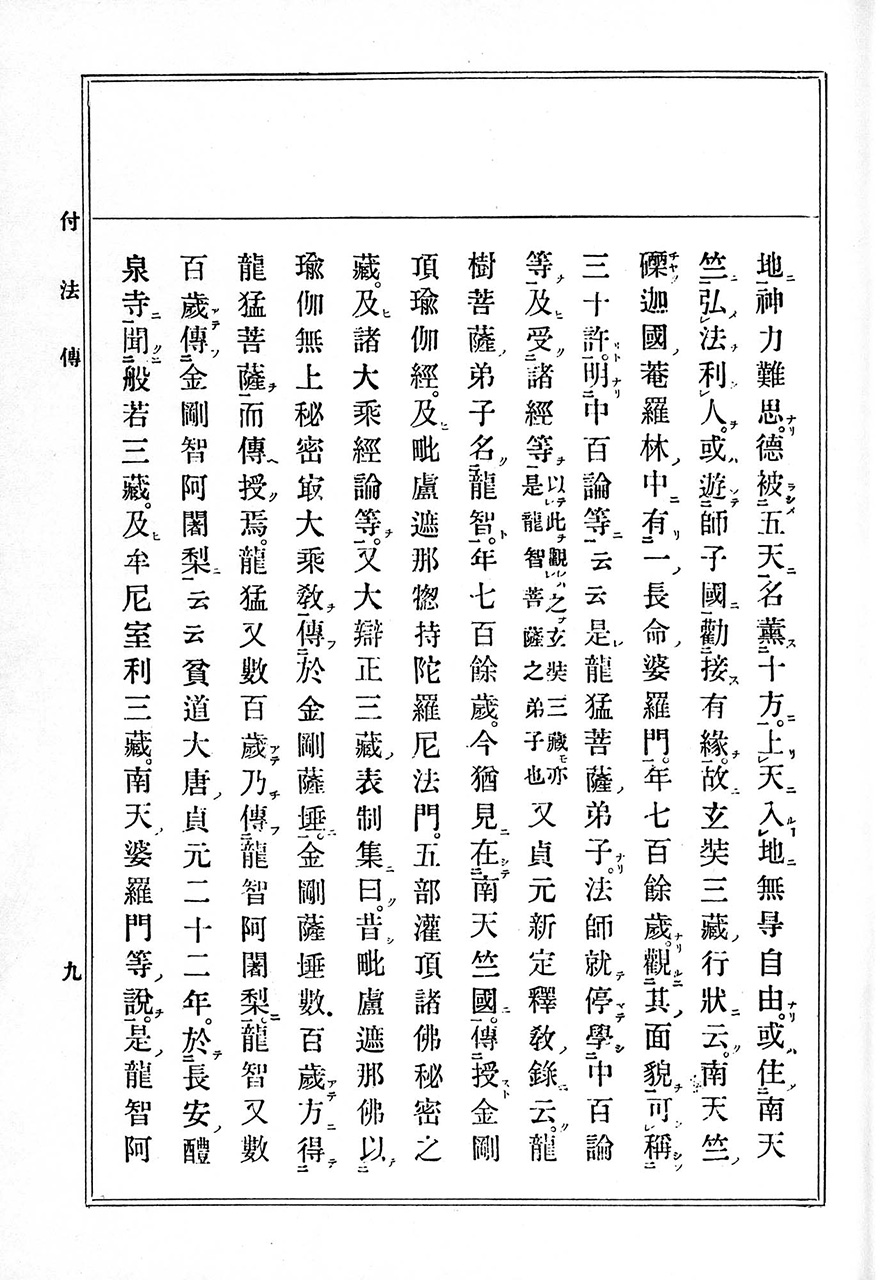 地神力難思。德被五天名薰十方。上天入地無㝵自由。或住南天
竺弘法利人。或遊師子國勸接有緣。故玄奘三藏行狀云。南天竺
磔迦國菴羅林中有一長命婆羅門。年七百餘歲。觀其面貌可稱
三十許。明中百論等云云是龍猛菩薩弟子。法師就停學中百論
等及受諸經等以此觀之玄奘三藏亦是龍智菩薩之弟子也又貞元新定釋敎錄云。龍
樹菩薩弟子名龍智。年七百餘歲。今猶見在南天竺國。傳授金剛
頂瑜伽經。及毗盧遮那惣持陀羅尼法門。五部灌頂諸佛秘密之
藏。及諸大乘經論等。又大辯正三藏表制集曰。昔毗盧遮那佛以
瑜伽無上秘密㝡大乘敎傳於金剛薩埵。金剛薩埵數百歲方得
龍猛菩薩而傳授焉。龍猛又數百歲乃傳龍智阿闍梨。龍智又數
百歲傳金剛智阿闍梨云云貧道大唐貞元二十二年。於長安醴
泉寺聞般若三藏。及牟尼室利三藏。南天婆羅門等說。是龍智阿
付法傳
九